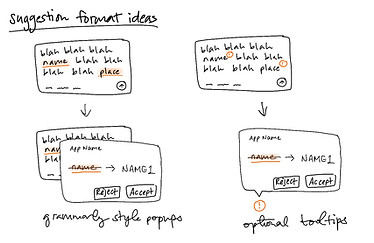 suggestion format ideas
blah blah blah
name blah blah
blah blah place
blah blah blah
name ! blah blah
blah blah place !
blah blah blah
App Name
name → NAME1
Reject Accept
App Name
name → NAME1
Reject Accept
!
grammarly style popups
optional tool-tips